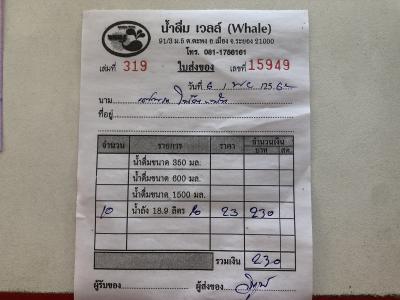 น้ำดื่ม เวลล์ (Whale)
91/3 ม.5 ต.ตะพง อ.เมือง จ.ระยอง 21000
โทร. 081-1756161
เล่มที่ 319 ใบส่งของ เลขที่ 15949
วันที่ 6
นาม
ที่อยู่
จำนวน รายการ ราคา จำนวนเงิน
บาท สต.
น้ำดื่มขนาด 350 มล.
น้ำดื่มขนาด 600 มล.
น้ำดื่มขนาด 1500 มล.
10 น้ำถัง 18.9 ลิตร 23 230
รวมเงิน 230
ผู้รับของ ผู้ส่งของ